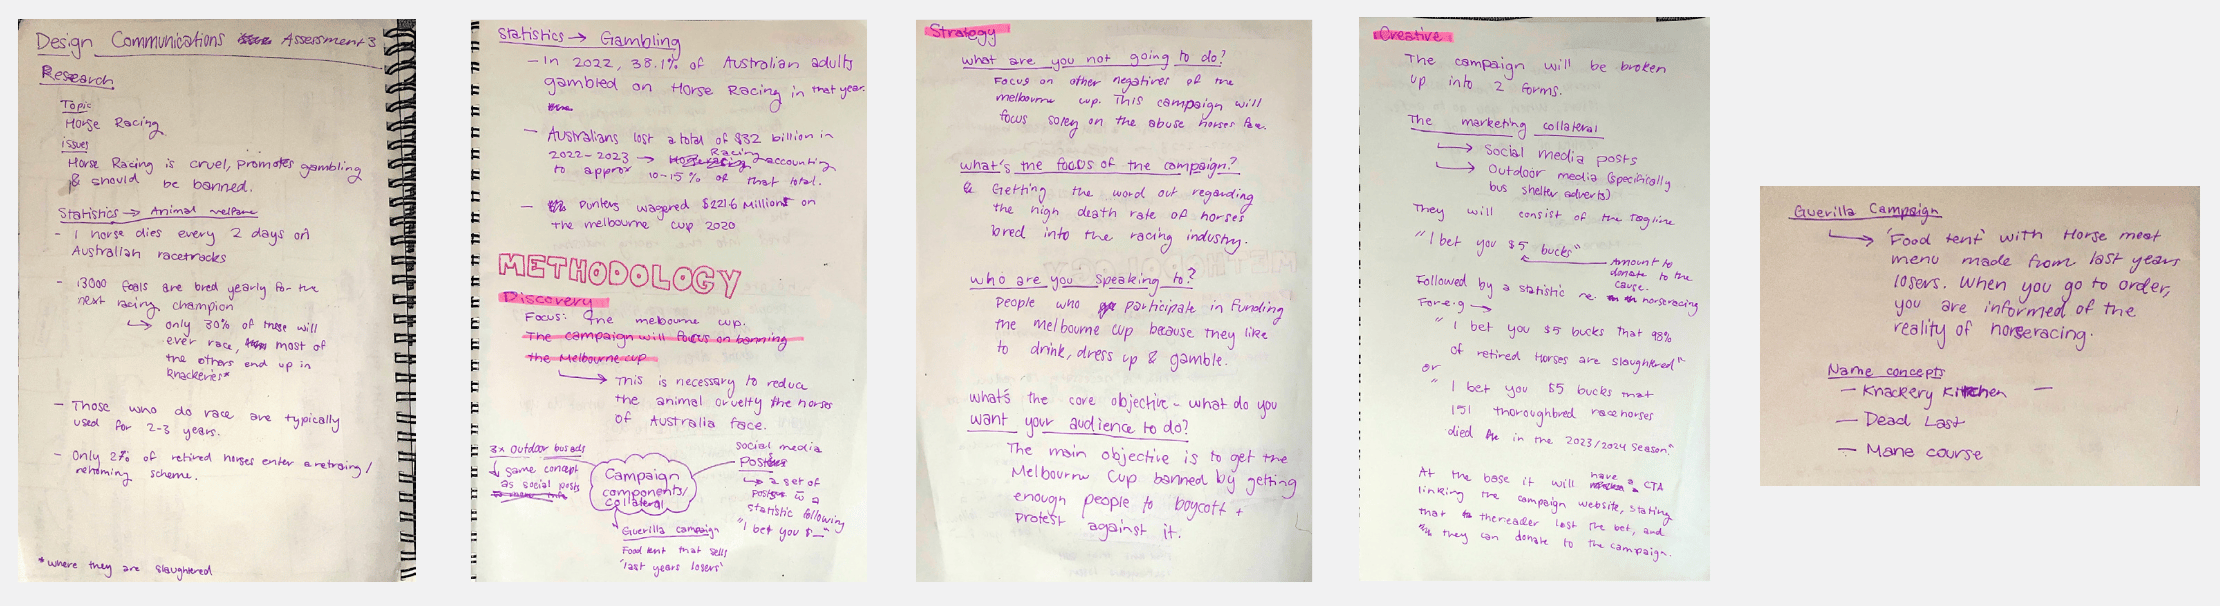 Design Communications Assessment 3
Research
Topic
Horse Racing
Issues
Horse Racing is cruel, promotes gambling
& should be banned.
Statistics → Animal welfare
- 1 horse dies every 2 days on
Australian racetracks
- 13000 foals are bred yearly for the
next racing champion
↳ only 30% of those will
ever race, most of
the others end up in
knackeries*
- Those who do race are typically
used for 2-3 years.
- Only 2% of retired horses enter a retraing/
rehoming scheme.
*where they are slaughtered
Statistics → Gambling
- In 2022, 38.1% of Australian adults
gambled on Horse Racing in that year.
- Australians lost a total of $32 billion in
2022-2023 → Racing accounting
to approx 10-15% of that total.
- Punters wagered $221.6 Millions on
the melbourne cup 2020
METHODOLOGY
Discovery
Focus: The melbourne cup.
The campaign will focus on banning
the Melbourne cup
→ This is necessary to reduce
the animal cruelty the horses
of Australia face.
3x Outdoor bus ads
↳ same concept
as social posts
Campaign
components/
collateral
social media
Posters
↳ a set of
posts w a
statistic following
"I bet you $_"
Guerilla campaign
Food tent that sells
'last years losers'
Strategy
what are you not going to do?
Focus on other negatives of the
melbourne cup. This campaign will
focus soley on the abuse horses face.
what's the focus of the campaign?
Getting the word out regarding
the high death rate of horses
bred into the racing industry.
who are you speaking to?
People who participate in funding
the melbourne cup because they like
to drink, dress up & gamble.
what's the core objective - what do you
want your audience to do?
The main objective is to get the
Melbourne Cup banned by getting
enough people to boycott +
protest against it.
Creative
The campaign will be broken
up into 2 forms.
The marketing collateral
→ Social media posts
→ Outdoor media (specifically
bus shelter adverts)
They will consist of the tagline
"I bet you $5 bucks"
Amount to
donate to the
cause.
Followed by a statistic re. horseracing
For e.g →
"I bet you $5 bucks that 98%
of retired horses are slaughtered"
or
"I bet you $5 bucks that
151 thoroughbred racehorses
died in the 2023/2024 season."
At the base it will have a CTA
linking the campaign website, stating
that the reader lost the bet, and
they can donate to the campaign.
Guerilla Campaign
→ 'Food tent' with Horse meat
menu made from last years
losers. When you go to order,
you are informed of the
reality of horseracing.
Name concepts
- Knackery Kitchen -
- Dead Last
- Mane course